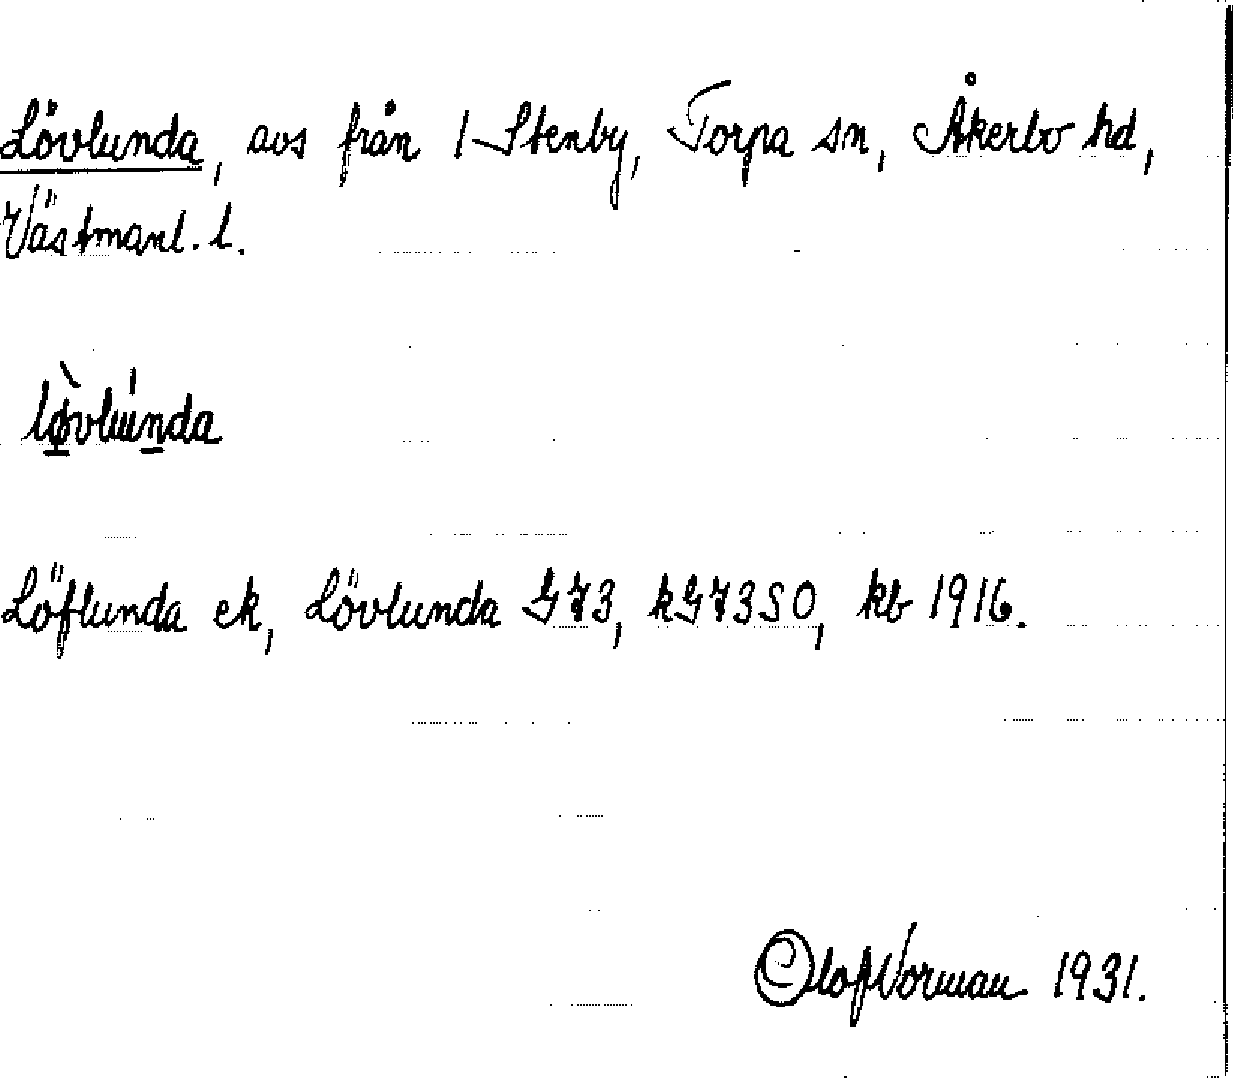 Lövlunda, avs från 1 Stenby, Torpa sn, Åkerbo hd,
Västmanl. l.
lø̀vlúnda
Löflunda ek, Lövlunda GJ3, kGJ350, kb 1916.
Olof Norman 1931.